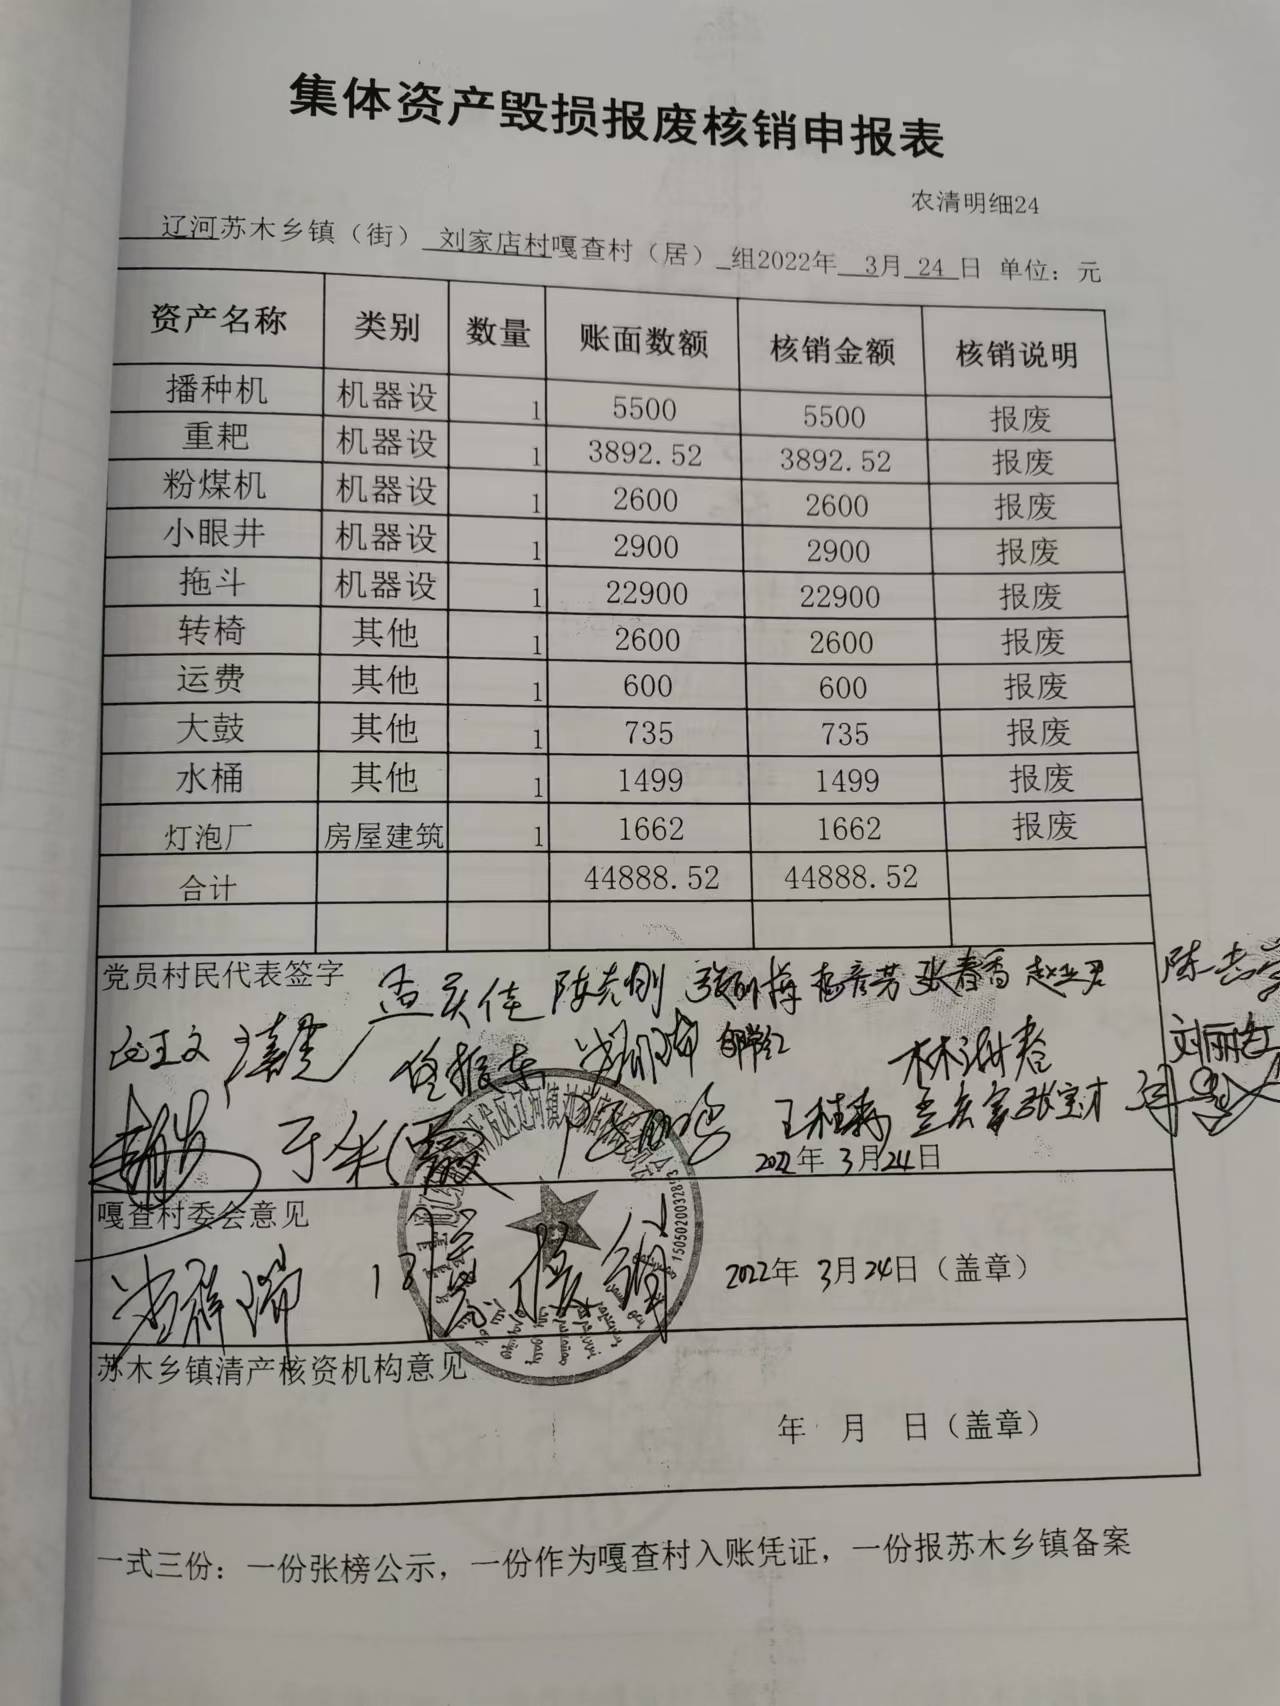 集体资产毁损报废核销申报表
农清明细24
辽河苏木乡镇（街） 刘家店村嘎查村（居） 组2022年 3月 24 日 单位：元
资产名称 类别 数量 账面数额 核销金额 核销说明
播种机 机器设 1 5500 5500 报废
重耙 机器设 1 3892.52 3892.52 报废
粉煤机 机器设 1 2600 2600 报废
小眼井 机器设 1 2900 2900 报废
拖斗 机器设 1 22900 22900 报废
转椅 其他 1 2600 2600 报废
运费 其他 1 600 600 报废
大鼓 其他 1 735 735 报废
水桶 其他 1 1499 1499 报废
灯泡厂 房屋建筑 1 1662 1662 报废
合计 44888.52 44888.52
党员村民代表签字 孟庆佳 陈志刚 杨彦芳 张春香
刘丽
张宝才
2022年 3月24日
嘎查村委会意见
同意核销 2022年 3月24日（盖章）
苏木乡镇清产核资机构意见
年 月 日（盖章）
一式三份：一份张榜公示，一份作为嘎查村入账凭证，一份报苏木乡镇备案